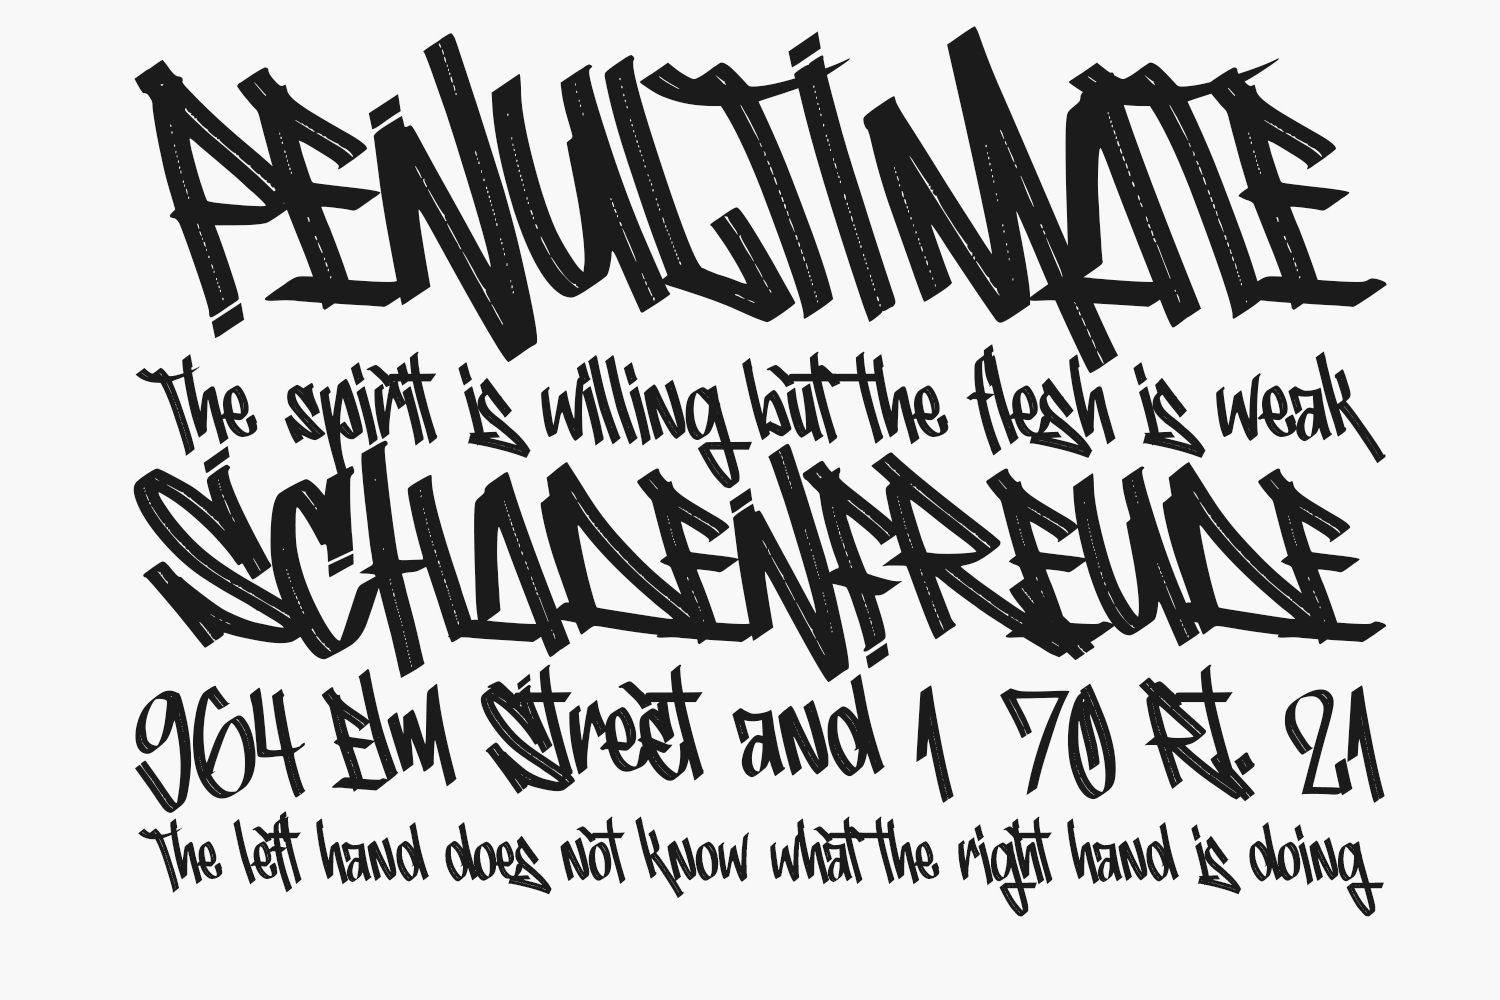 PENULTIMATE
The spirit is willing but the flesh is weak
SCHADENFREUDE
964 Elm Street and 1 70 Rt. 21
The left hand does not know what the right hand is doing